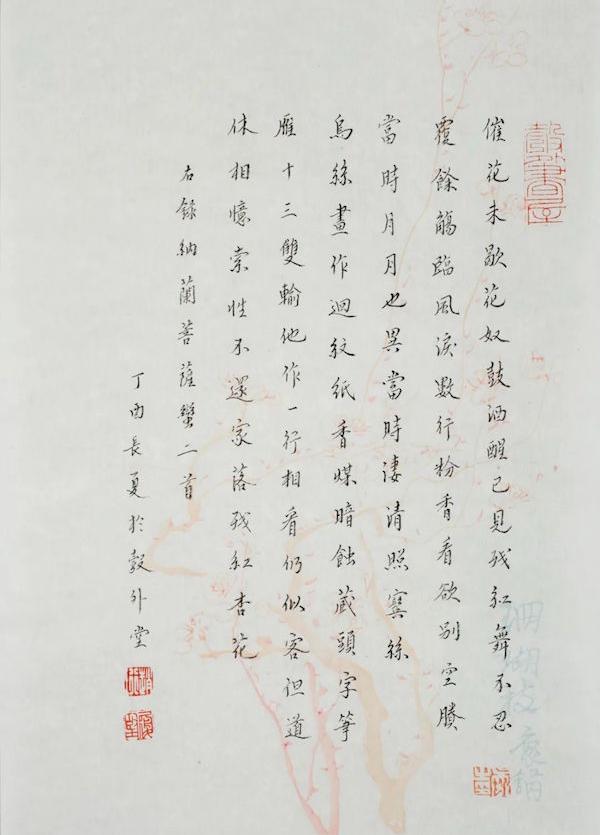 催花未歇花奴鼓酒醒已見殘紅舞不忍
覆餘觴臨風淚數行粉香看欲別空賸
當時月月也異當時淒清照鬢絲
烏絲畫作迴紋紙香煤暗蝕藏頭字箏
雁十三雙輸他作一行相看仍似客但道
休相憶索性不還家落殘紅杏花
右錄納蘭菩薩蠻二首
丁酉長夏於外堂
珊瑚枝